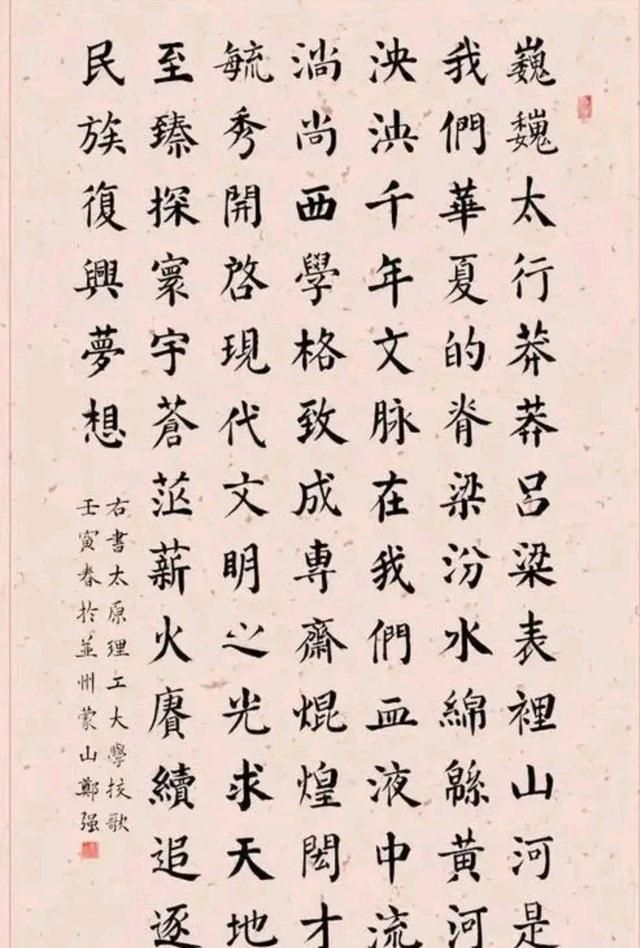 巍巍太行莽莽吕梁表裡山河是
我們華夏的脊梁汾水綿緜黄河
泱泱千年文脉在我們血液中流
淌尚西學格致成專齋焜煌閎才
毓秀開啓現代文明之光求天地
至臻探寰宇蒼茫薪火賡續追逐
民族復興夢想
右書太原理工大學校歌
壬寅春於並州蒙山鄭强